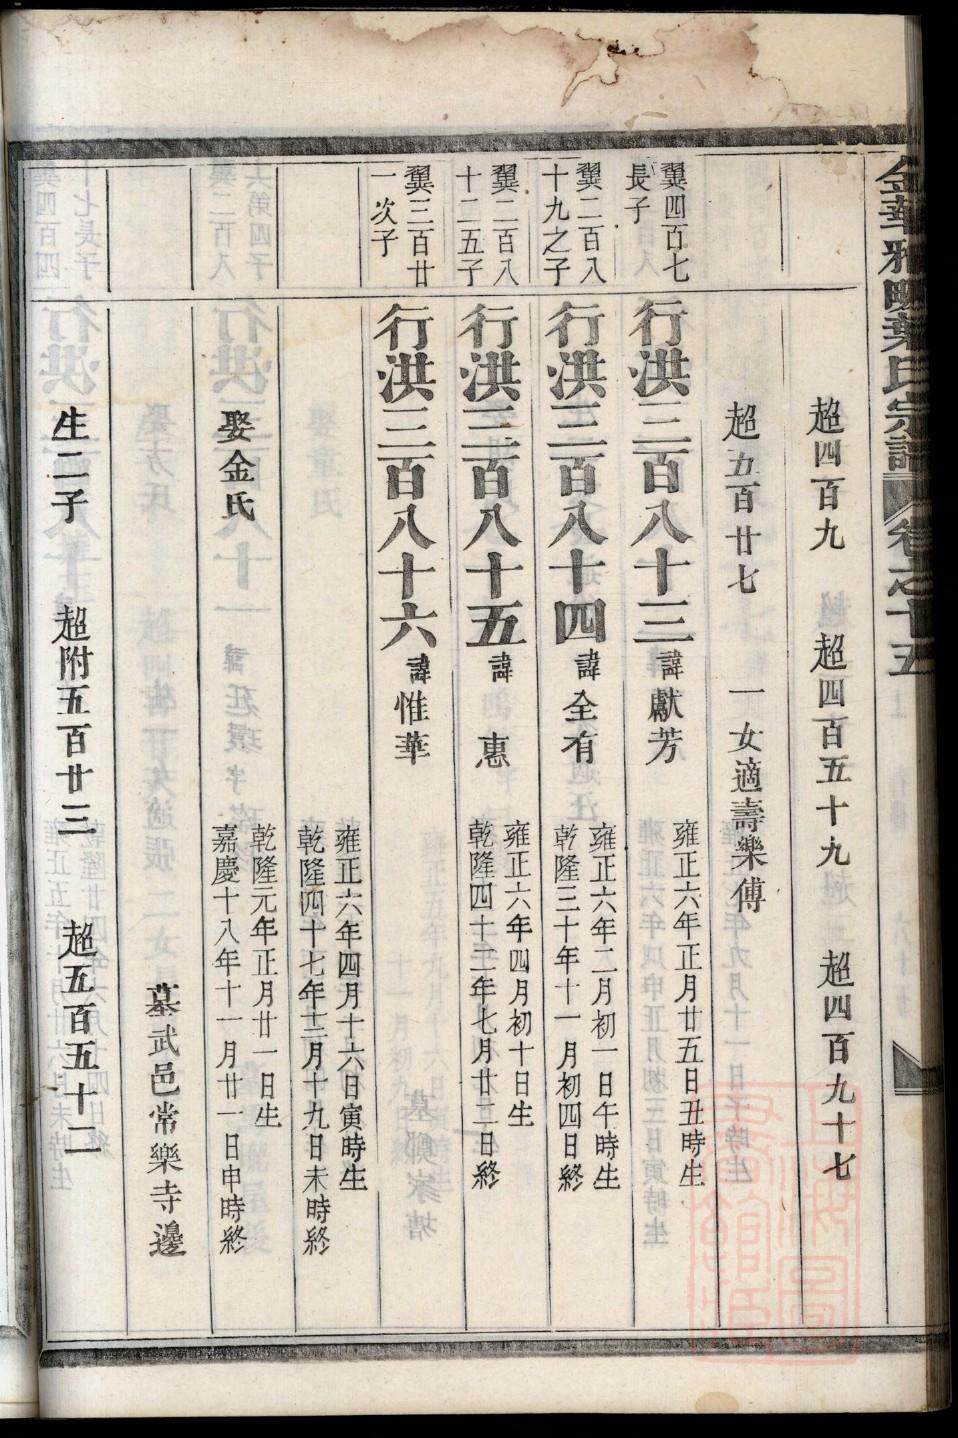 金華雅畈葉氏宗譜 卷之十五
超四百九 超四百五十九 超四百九十七
超五百廿七 一女適壽樂傅
翼四百七
長子
行洪三百八十三 諱獻芳
雍正六年正月廿五日丑時生
翼二百八
十九之子
行洪三百八十四 諱全有
雍正六年二月初一日午時生
乾隆三十年十一月初四日終
翼二百八
十二五子
行洪三百八十五 諱惠
雍正六年四月初十日生
乾隆四十二年七月廿二日終
翼三百廿
一次子
行洪三百八十六 諱惟華
雍正六年四月十六日寅時生
乾隆四十七年十二月十九日未時終
娶金氏
乾隆元年正月廿一日生
嘉慶十八年十一月廿一日申時終
墓武邑常樂寺邊
生二子 超附五百廿三 超五百五十二